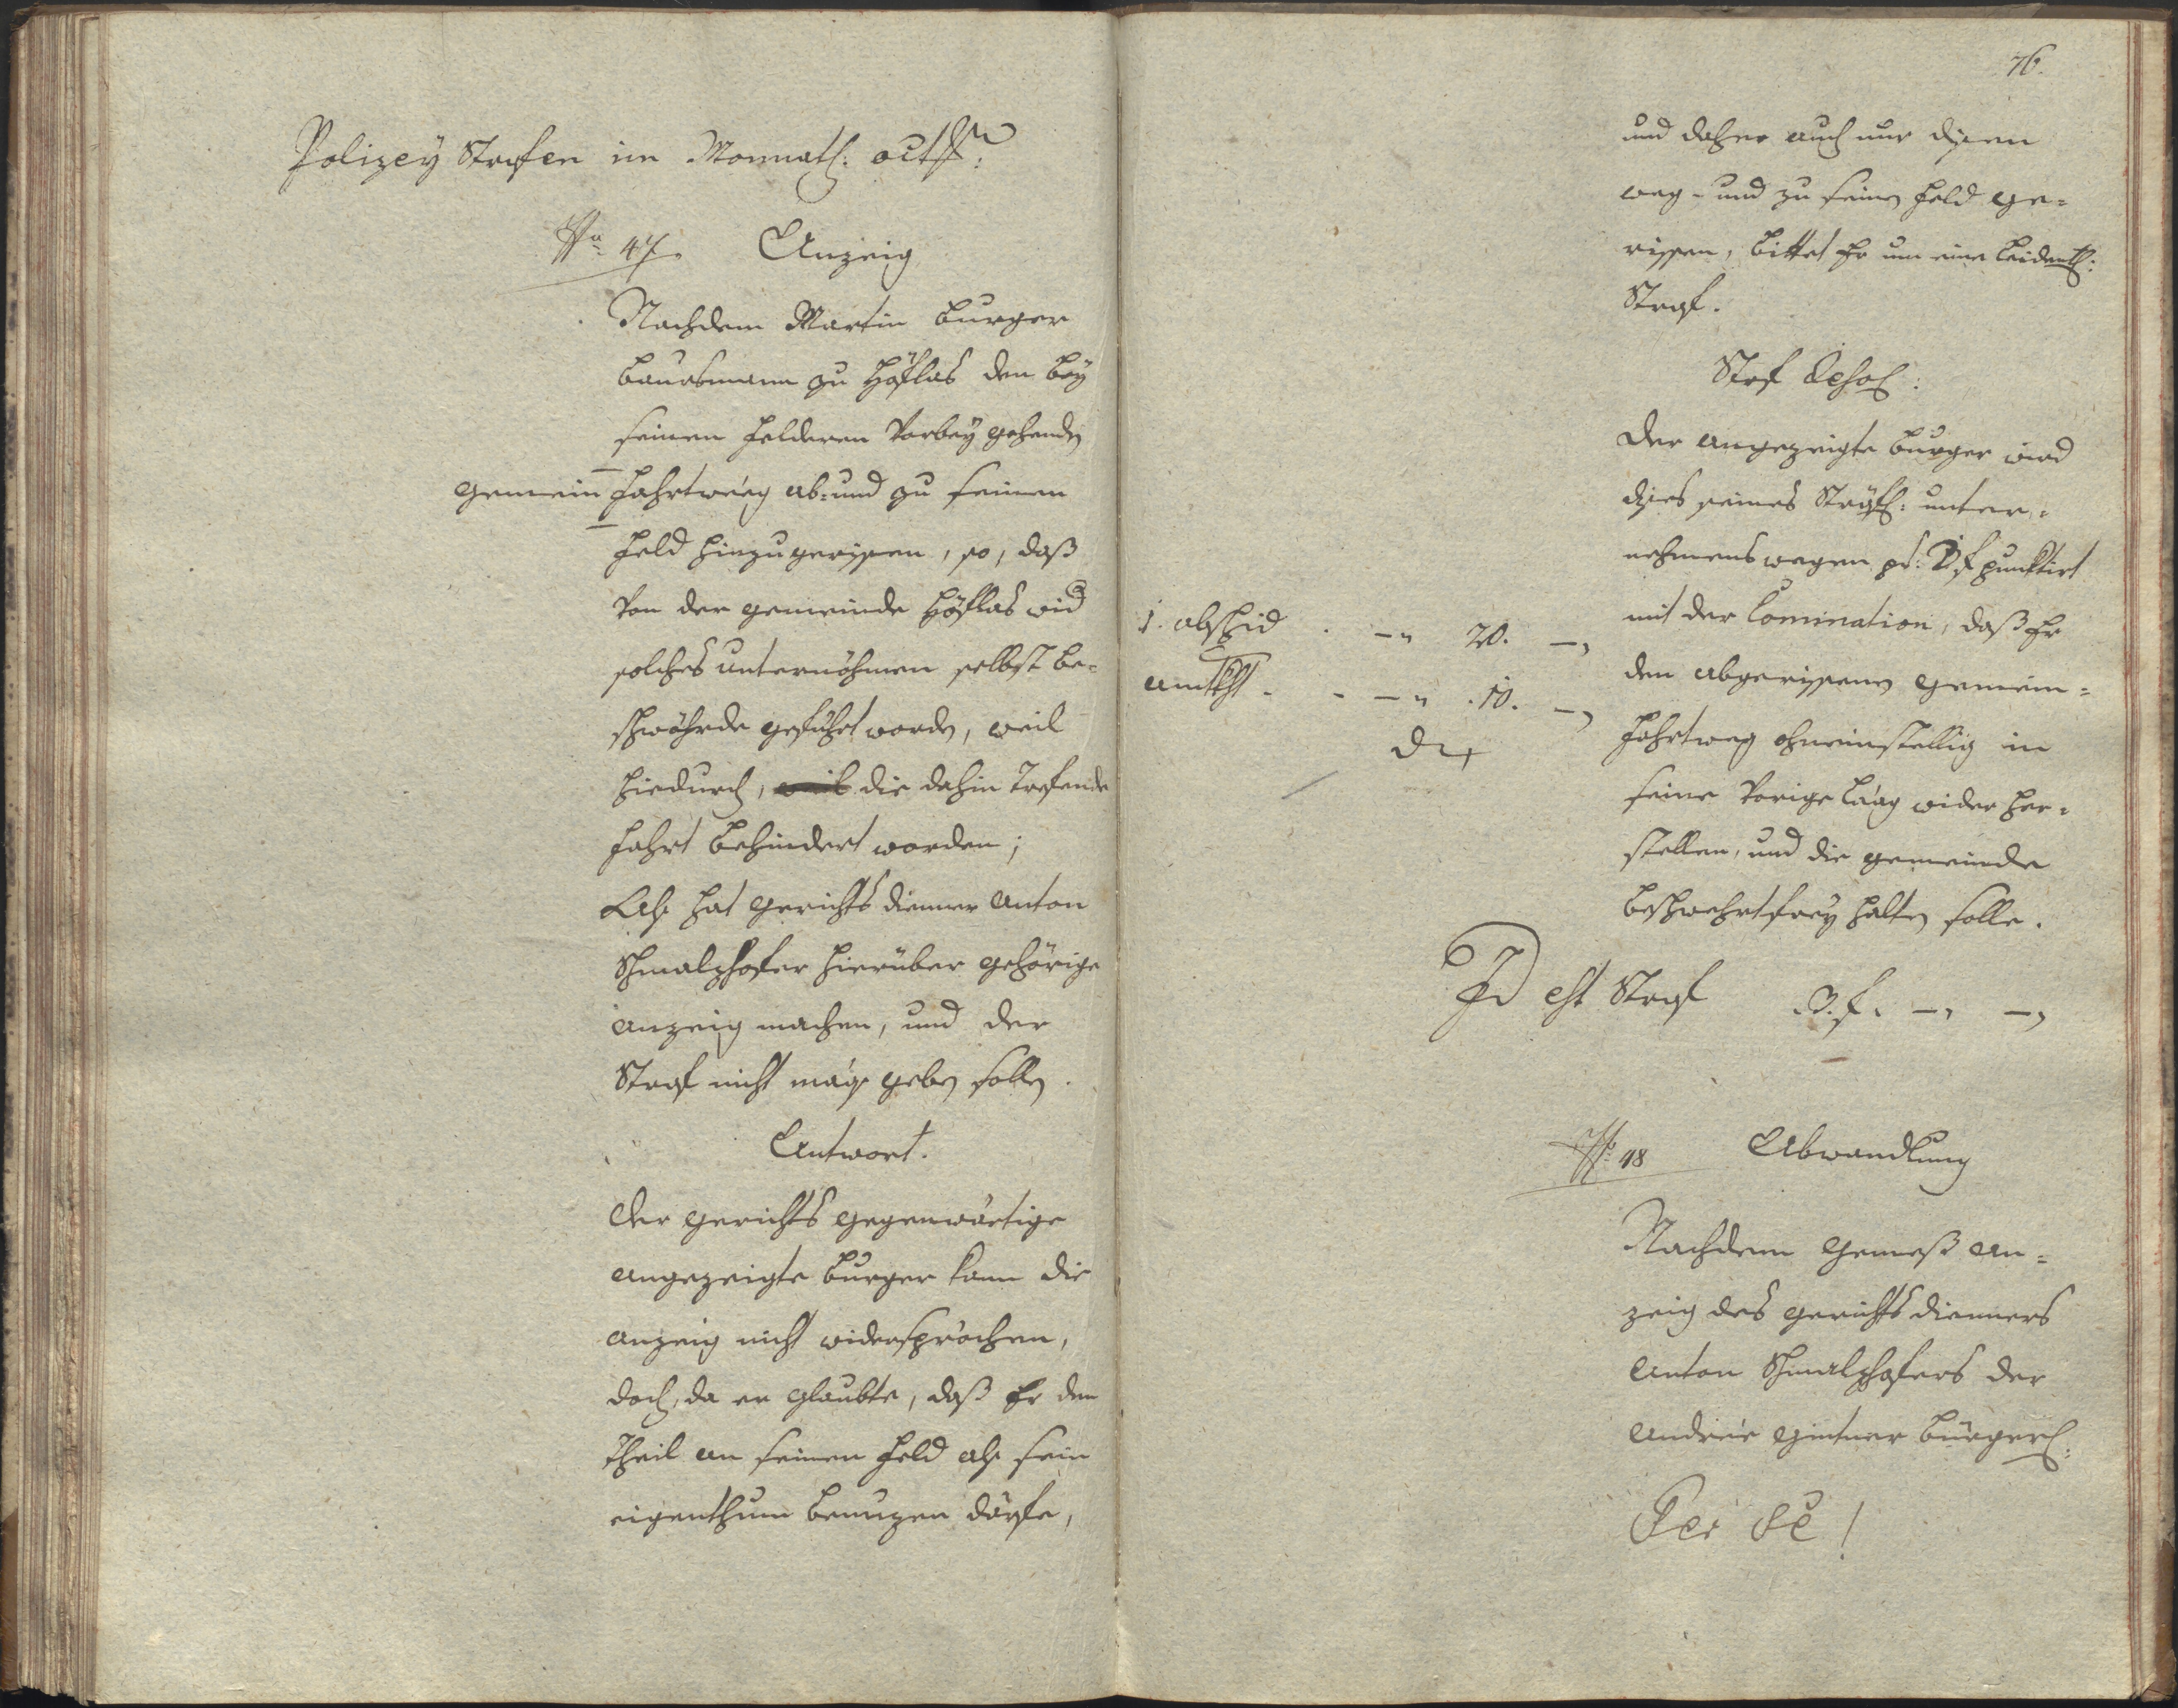 Polizey Strafen im Monnath: octbr:
No 47. Anzeig
Nachdem Martin Burger
Baursmann zu Höflas den bey
seinen Felderen Vorbey gehenden
gemein Fahrtweeg ab- und zu seinem
Feld hinzugerissen, so, daß
Von der gemeinde Höflas wid
solches unternöhmen selbst be-
schwöhrde geführt worden, weil
hiedurch, die dahin Trefende
Fahrt behindert worden;
Als hat Gerichts diener Anton
Schmalzhofer hierüber gehörige
anzeig machen, und der
Straf nicht maas geben sollen.
Antwort.
Der Gerichts gegenwärtige
angezeigte Burger kann die
anzeig nicht widersprochen,
doch, da er glaubte, daß Er den
Theil an seinem Feld als sein
eigenthum benuzen därfe,
76.
und daher auch nur disen
weg- und zu seinen Feld ge-
rissen, bittet Er um eine Leidentl:
Straf.
Der angezeigte Burger wird
dises seines Sträfl: unter-
nehmens wegen pr: 3 f punktirt
1. abschid . – " 20. –,
mit der Comination, daß Er
den abgerissenen gemein-
amtkht . . – " . 10. –,
Fahrtweg ohneinstellig in
seine Vorige Laag wider her-
stellen, und die gemeinde
beschwehrtfrey halten solle.
Id est Straf 3. f. –, –,
No 48 Abwandlung
Nachdem Gemeß An-
zeig des gerichts dieners
Anton Schmalzhofers der
Andreé Gintner bürgerl:
Per se!